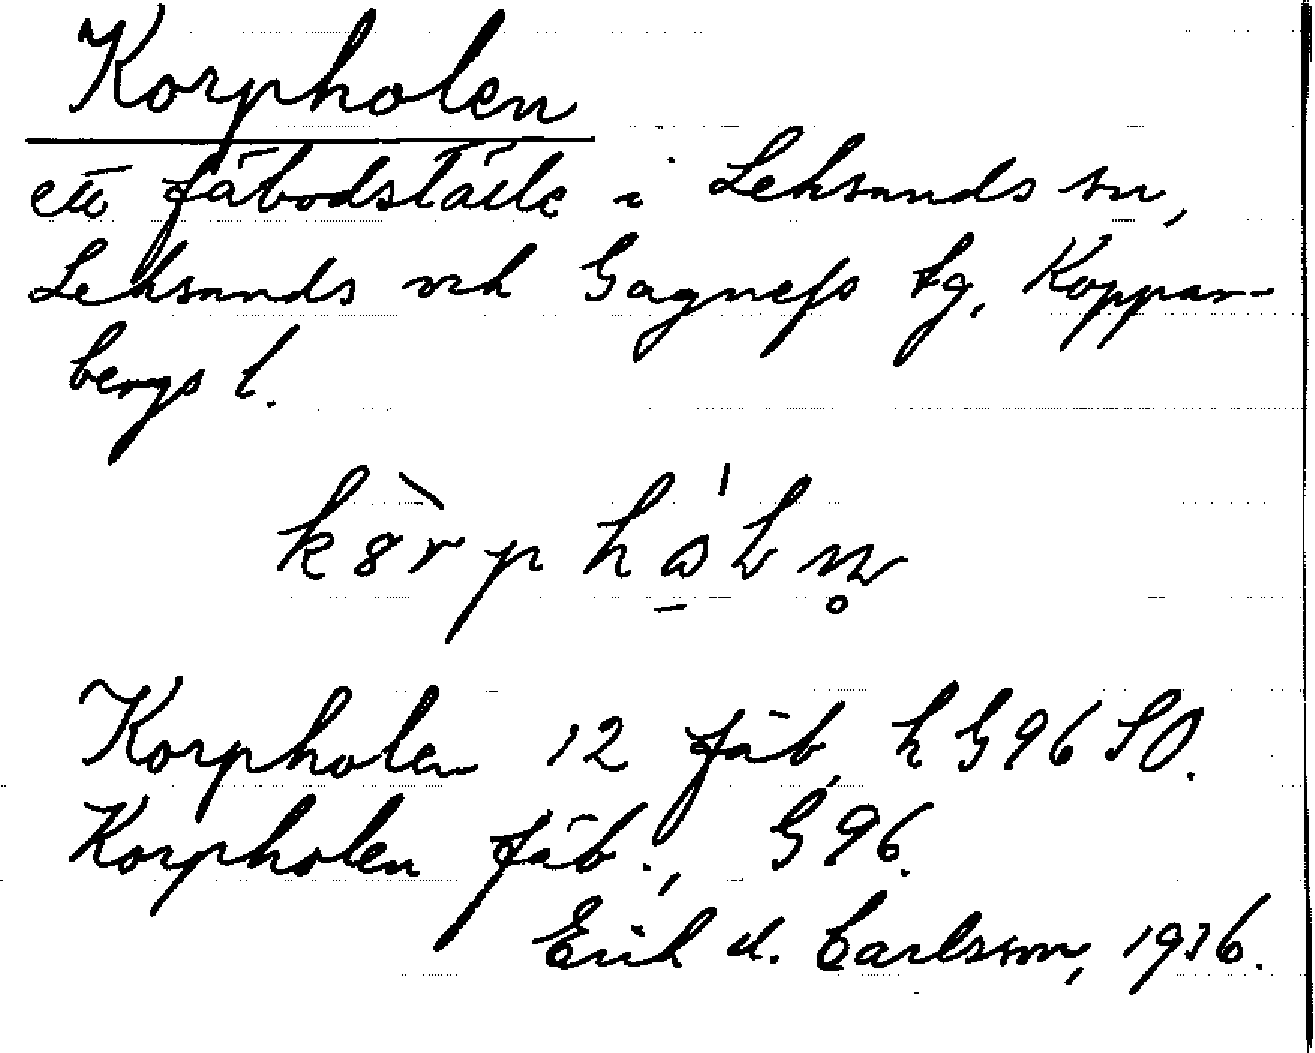 Korpholen
ett fäbodställe i Leksands sn,
Leksands och Gagnefs tg, Koppar-
bergs l.
Korpholen 12 fäb, k G96 SO.
Korpholen fäb., G96.
Erik A. Carlsson, 1936.